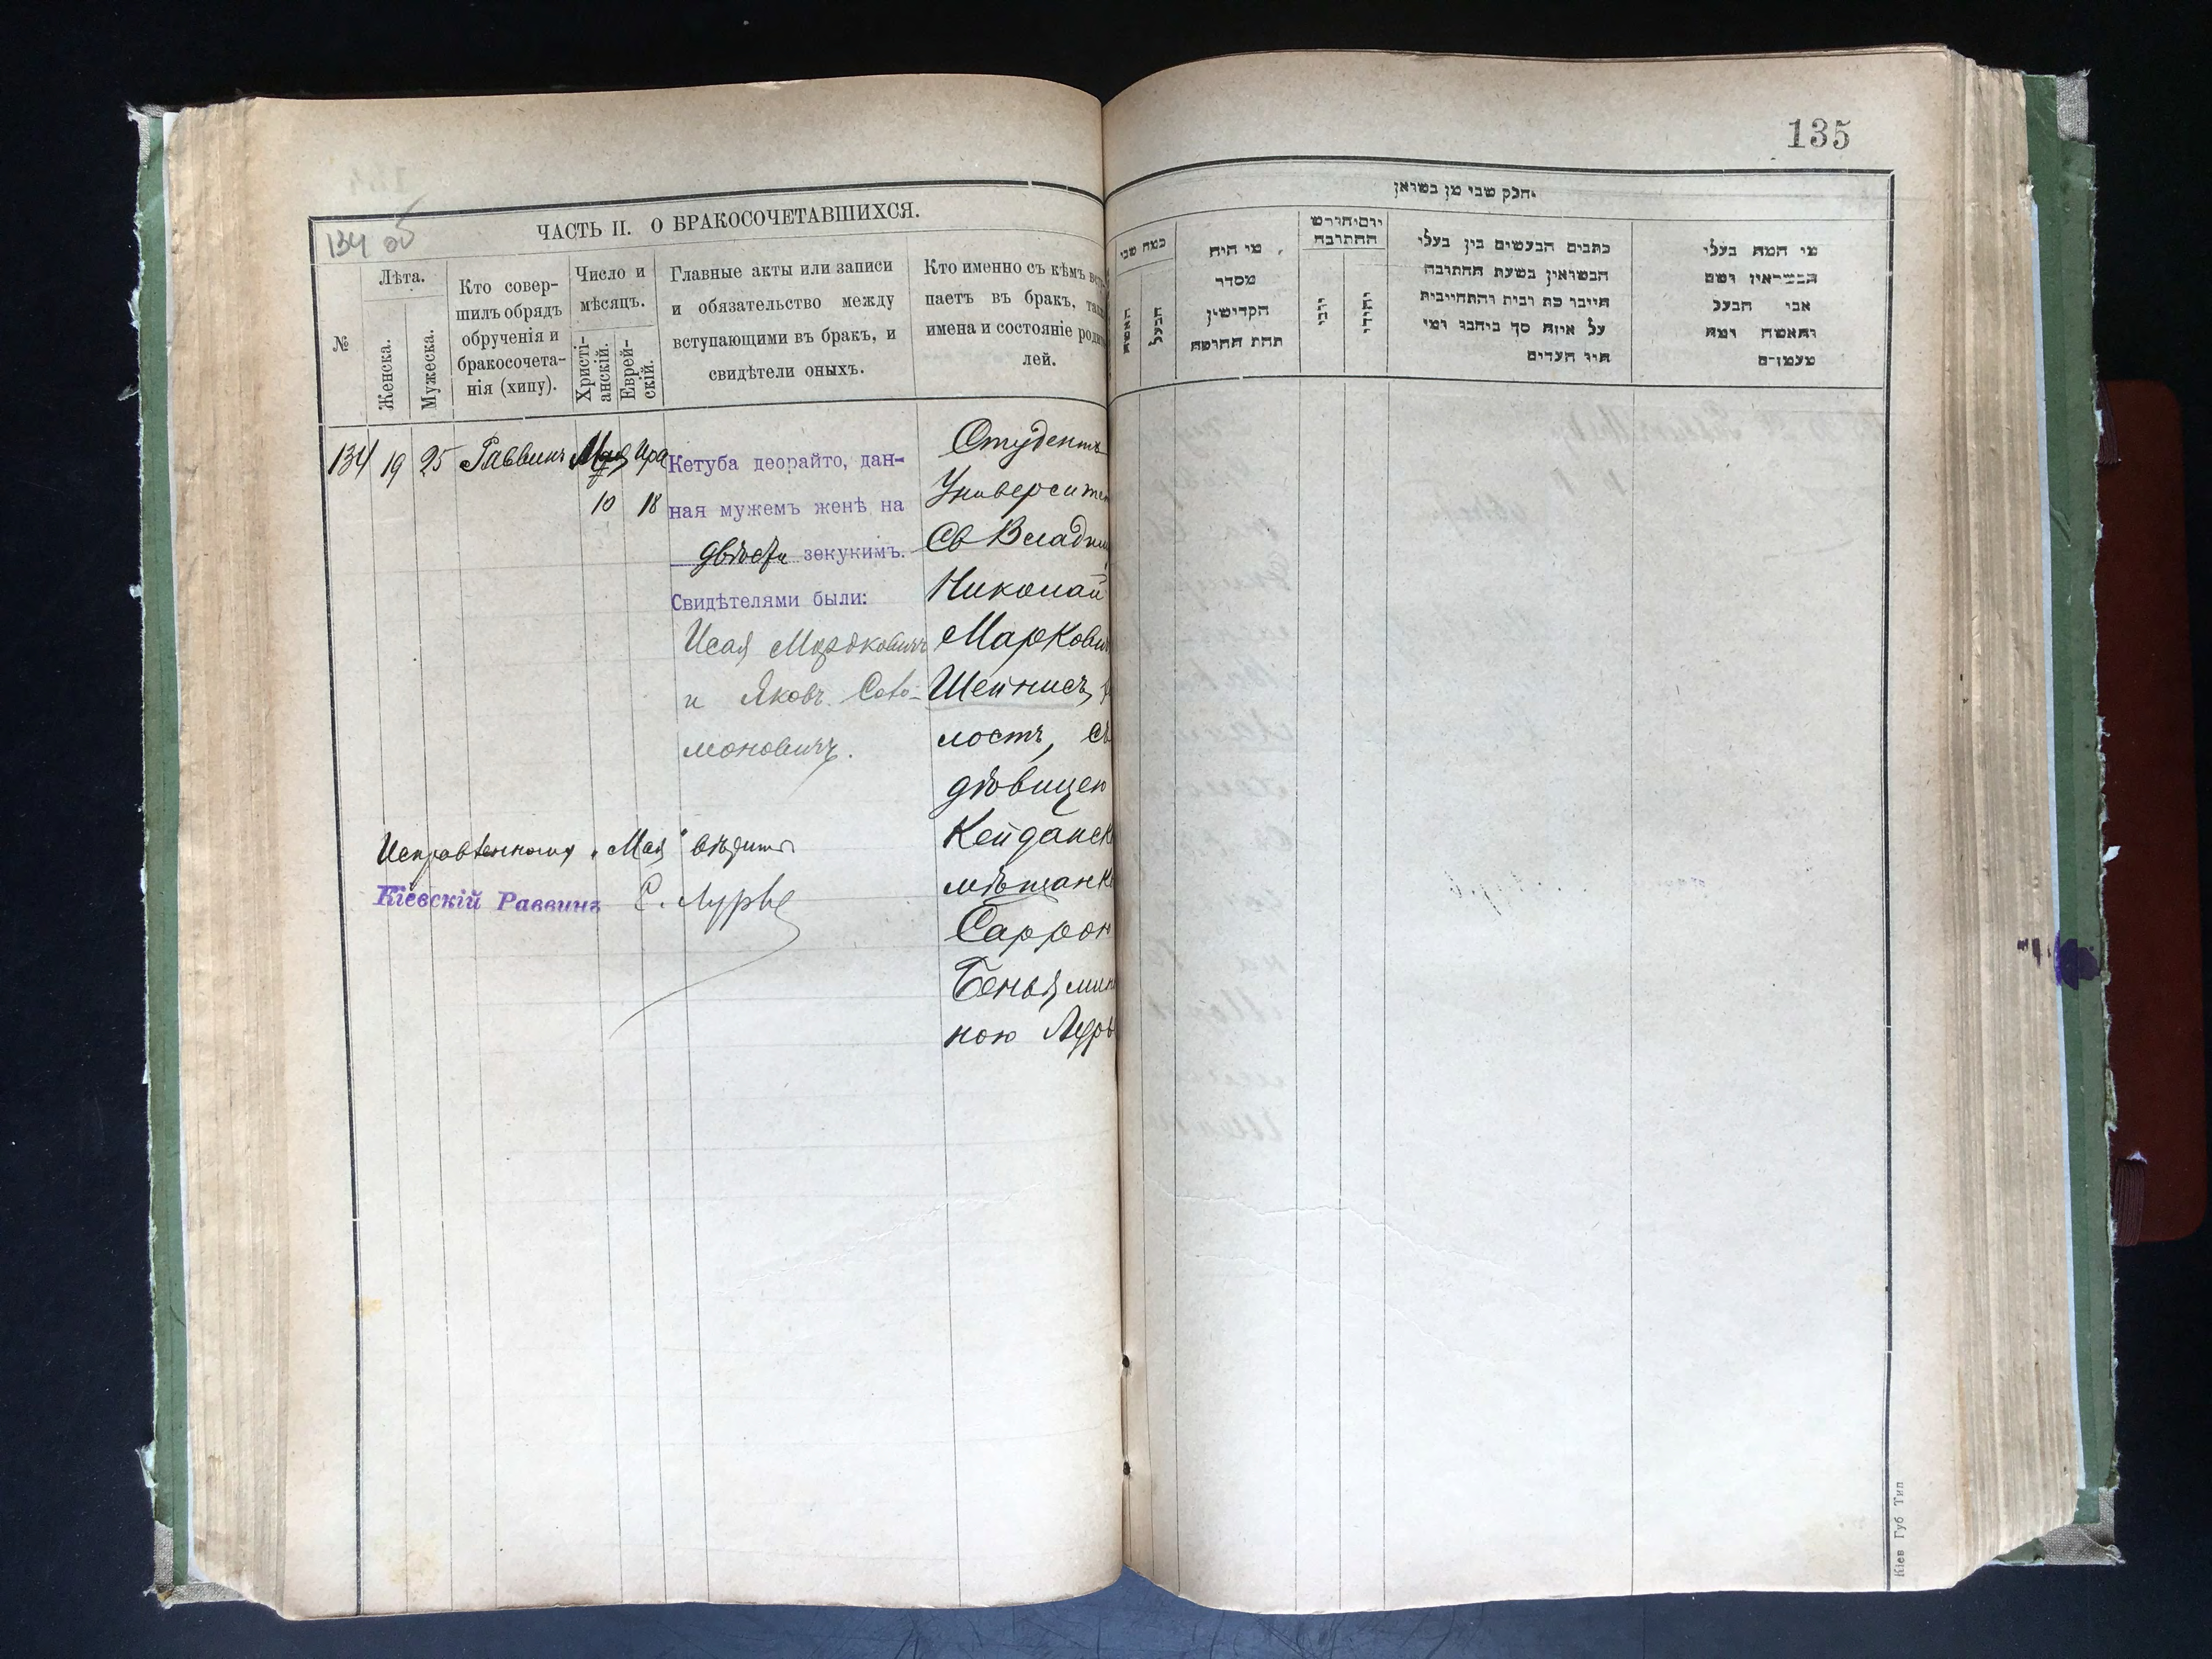 134 об
ЧАСТЬ II. О БРАКОСОЧЕТАВШИХСЯ.
№
Лѣта.
Женска.
Мужеска.
Кто совер-
шилъ обрядъ
обрученія и
бракосочета-
нія (хипу).
Число и
мѣсяцъ.
Христі-
анскій.
Еврей-
скій.
Главные акты или записи
и обязательство между
вступающими въ бракъ, и
свидѣтели оныхъ.
Кто именно съ кѣмъ всту
паетъ въ бракъ, такж
имена и состояніе родит
лей.
134
19
25
Раввинъ
Мая
10
Ира
18
Кетуба деорайто, дан-
ная мужемъ женѣ на
двѣсти зекукимъ.
Свидѣтелями были:
Исая Мордковичъ
и Яковъ Соло-
моновичъ.
Студентъ
Университе
Св Владим
Николай
Маркович
Шейнисъ,
лостъ, съ
дѣвицею
Кейданск
мѣщанк
Саррою
Беньямин
ною Лурь
Исправленному „Мая" вѣрить
Кіевскій Раввинъ С. Лурье
135
חלק שני מן נשואן
כמה שני
האשה
הבעל
מי היה
מסדר
הקדישין
תחת החופה
יום וחודש
החתונה
נוצרי
יהודי
כתבים הנעשים בין בעלי
הנשואין בשעת החתונה
חייבו כת רבית והתחייבית
על איזה סך ביחבו ומי
היו העדים
מי המה בעלי
הנשואין ושם
אבי הבעל
והאשה ומה
מעמדם
Кіев Губ Тип